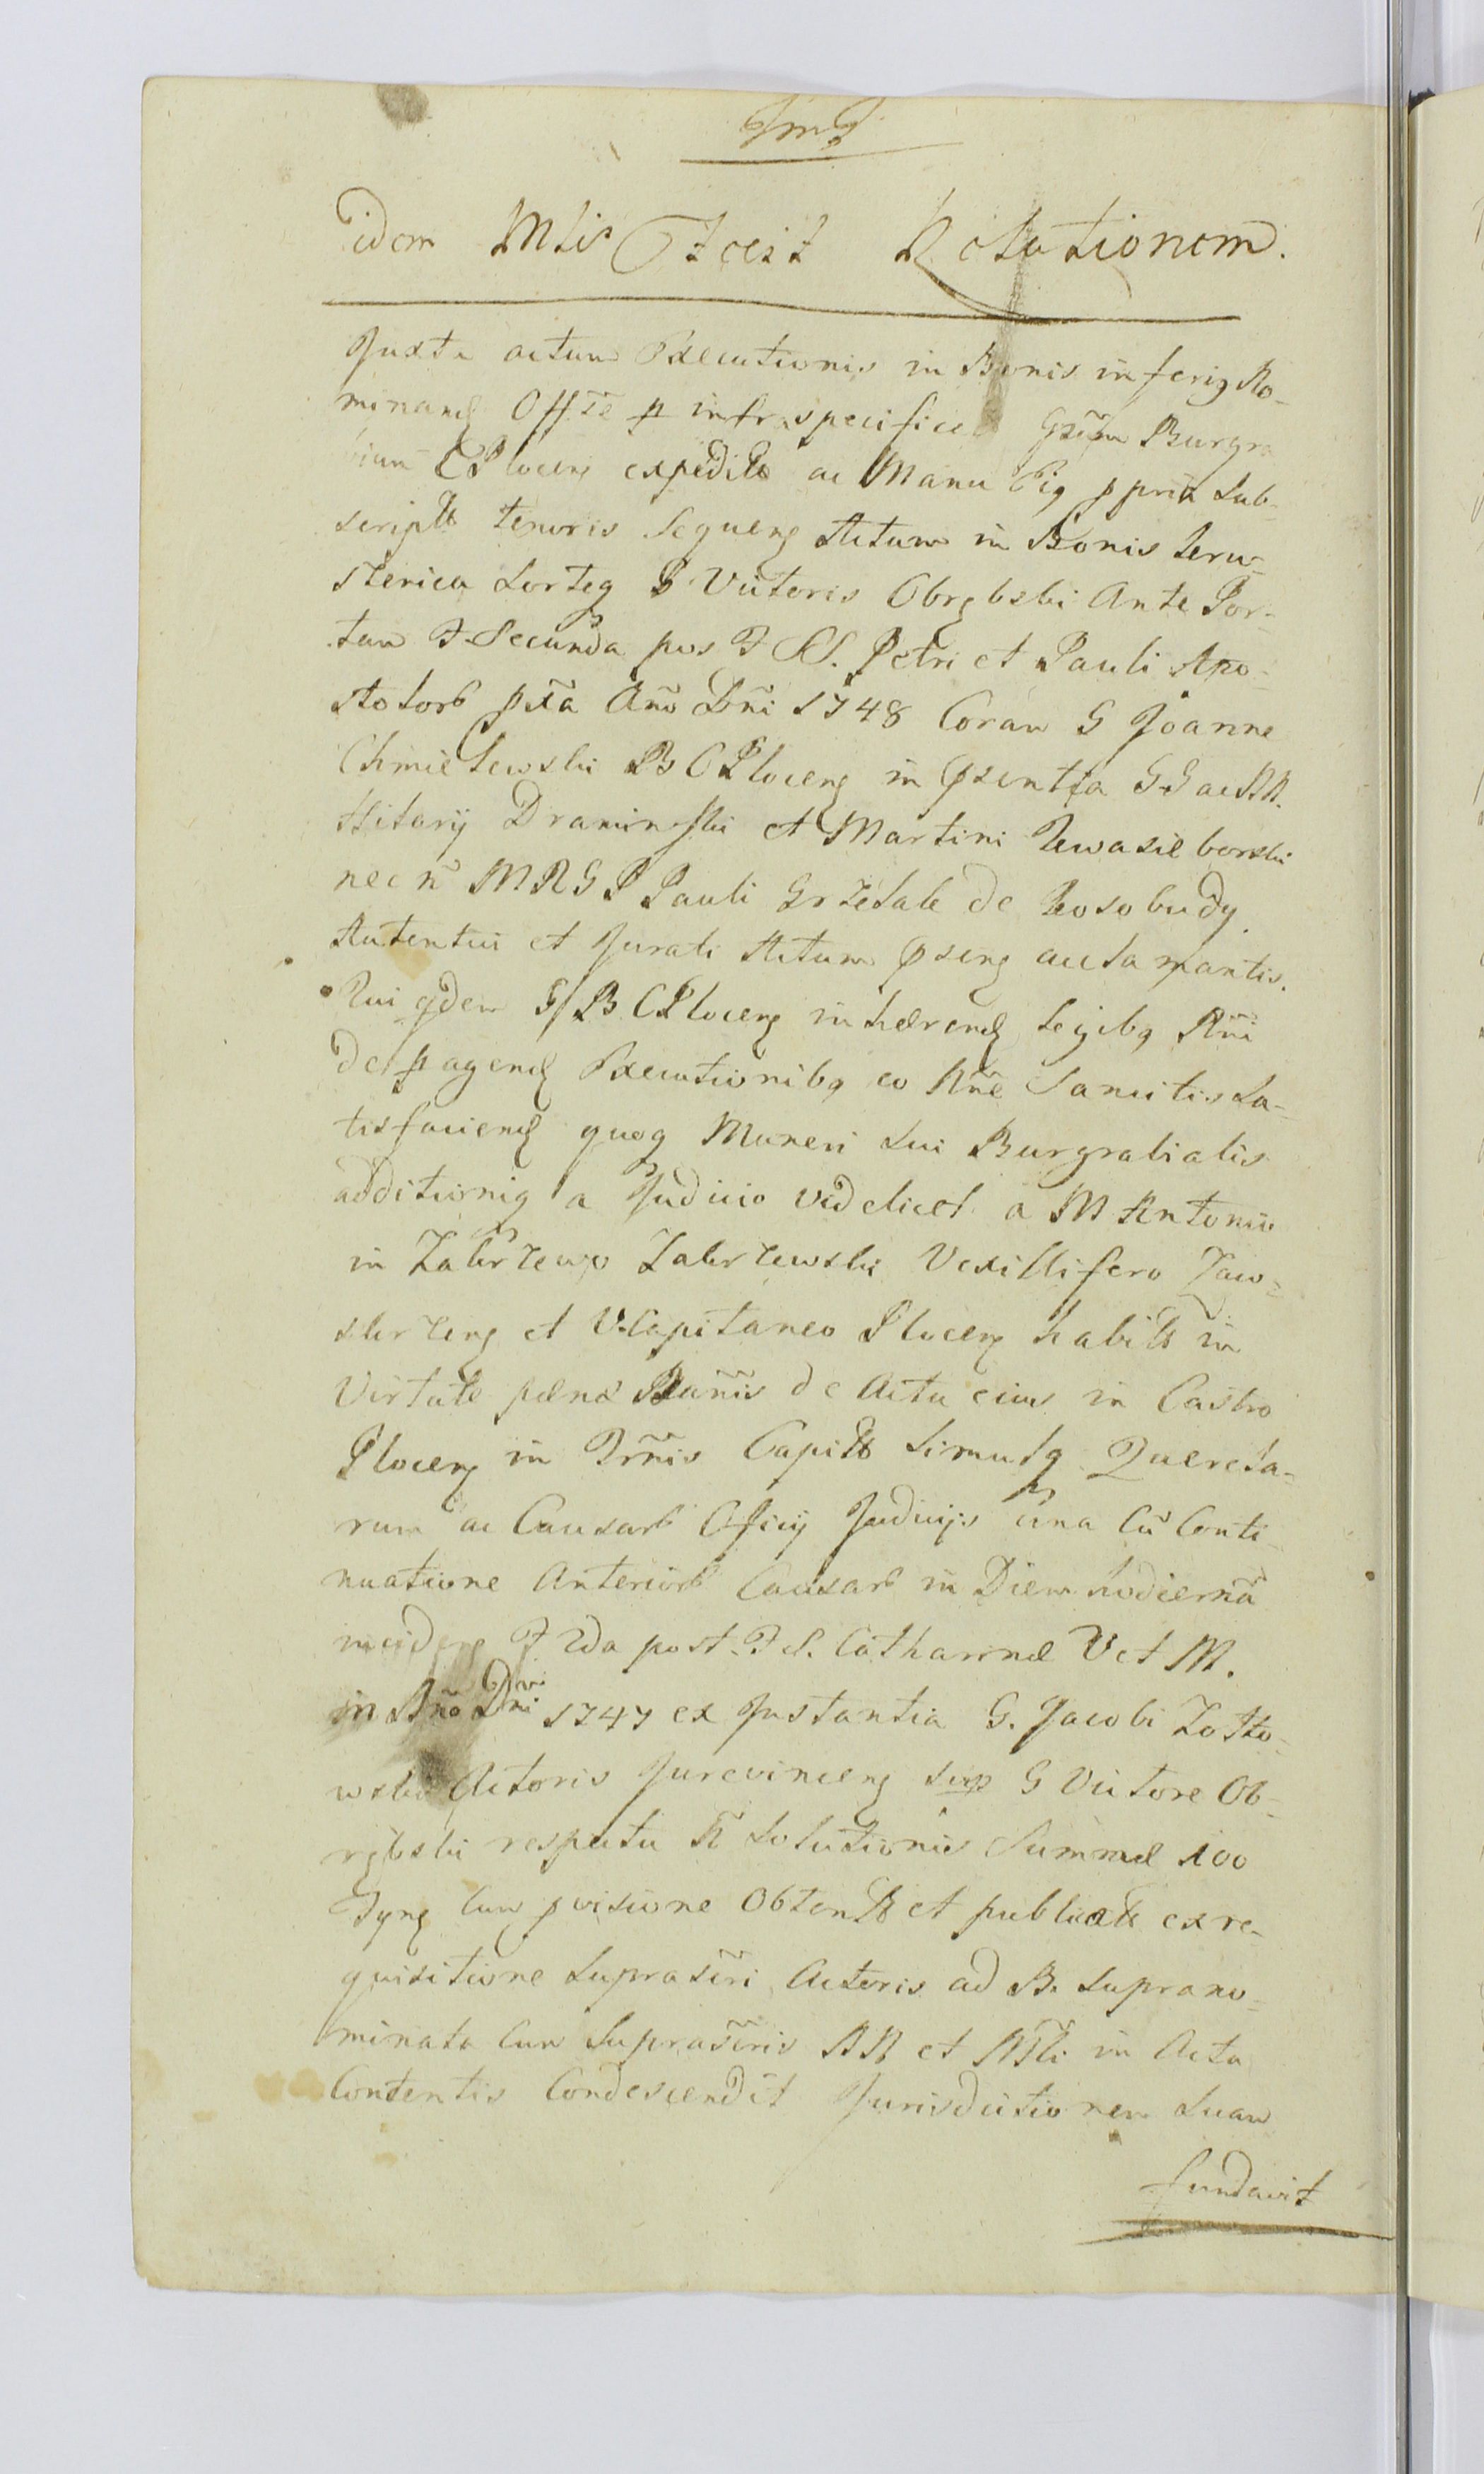 idem Mlis Fecit Relationem.
Juxta actum Executionis in Bonis inferiq No-
minand Offse p infraspecificat Gsum Burgra
bium CPlocen expedit ac Manu Eiq ppria sub-
script tenoris Sequeng Actum in Bonis
sorteq G Victoris Obrębski Ante Por-
tam F. Secunda pos F SS. Petri et Pauli Apo-
stolorb pxa Ano Dni 1748 Coram G Joanne
Chmielewski B CPloceng in psentia GG ac NN.
Hilarij Draminski et Martini Kwasieborski
nec n MRGP Pauli Grzelak de Kosobudy
Autentici et Jurati Actum pseng acclamantis.
Qui qdem G B CPloceng inhærend Legibq Rni
de pagend Executionibq eo Nne Sancitis Sa-
tisfaciend quoq Muneri sui Burgrabialis
additioniq a Judicio videlicet a M Antonio
in Zakrzewo Zakrzewski Vexillifero Zaw-
skrzeng et V.Capitaneo Ploceng habit in
Virtute pænæ Bannis de Actu eius in Castro
Ploceng in Trnis Capit Simulq Querela-
rum ac Causarb Officij Judicijs una Cu Conti-
nuatione Anteriorb Causarb in Diem hodierna
inciden F 2da post F S. Catharinæ V et M.
in Ano Dni 1747 ex Instantia G. Jacobi Zotto-
wski Actoris Jurevinceng sup G Victore Ob-
rębski respectu N solutionis Summæ 100
Tyng Cum pvisione Obtent et publicat ex re-
quisitione suprascri Actoris ad B. suprano-
minata Cum Suprascris NN et Mli in Acta
Contentis Condescendit Jurisdictionem Suam
fundavit